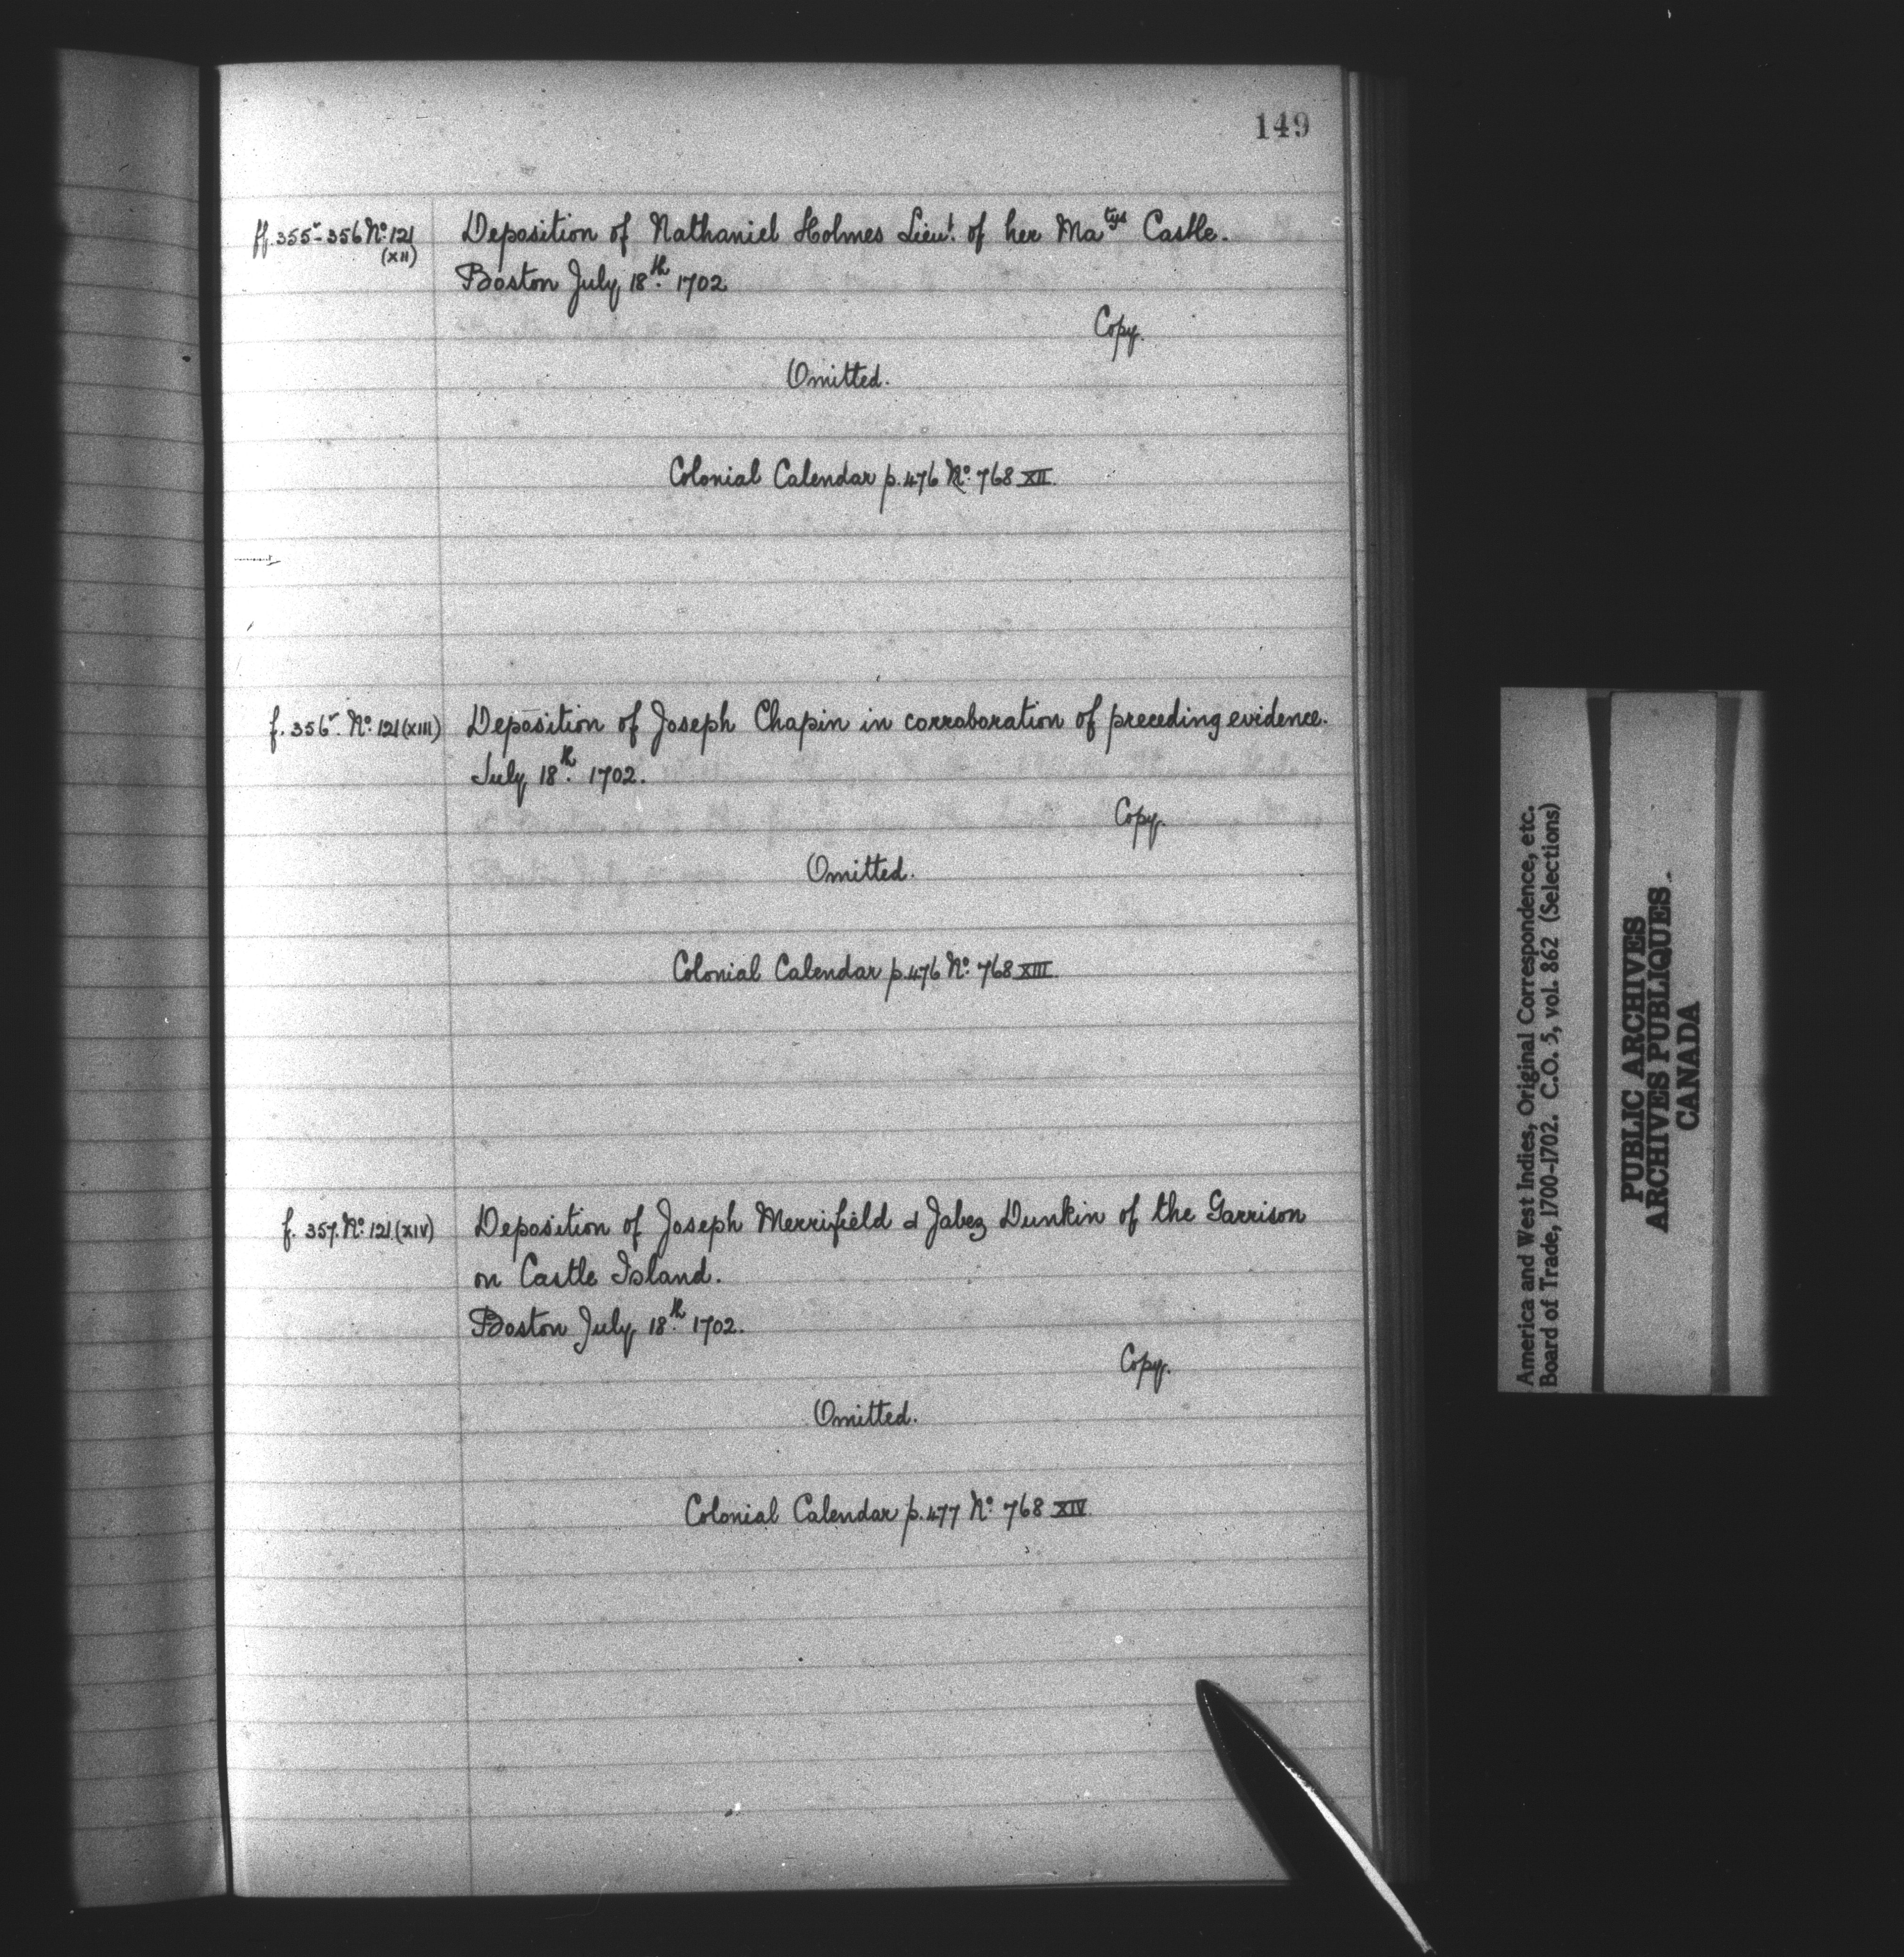 149
ff. 355-356 No. 121 (XII)
Deposition of Nathaniel Holmes Lieut. of her Matys Castle.
Boston July 18th. 1702
Copy.
Omitted.
Colonial Calendar p. 476 No. 768 XII.
f. 356 No. 121 (XIII)
Deposition of Joseph Chapin in corroboration of preceding evidence.
July 18th. 1702.
Copy.
Omitted.
Colonial Calendar p. 476 No. 768 XIII.
f. 357. No. 121 (XIV)
Deposition of Joseph Merrifield & Jabez Dunkin of the Garrison
on Castle Island.
Boston July 18th. 1702.
Copy.
Omitted.
Colonial Calendar p. 477 No. 768 XIV.
America and West Indies, Original Correspondence, etc.
Board of Trade, 1700-1702. C.O. 5, vol. 862 (Selections)
PUBLIC ARCHIVES
ARCHIVES PUBLIQUES
CANADA